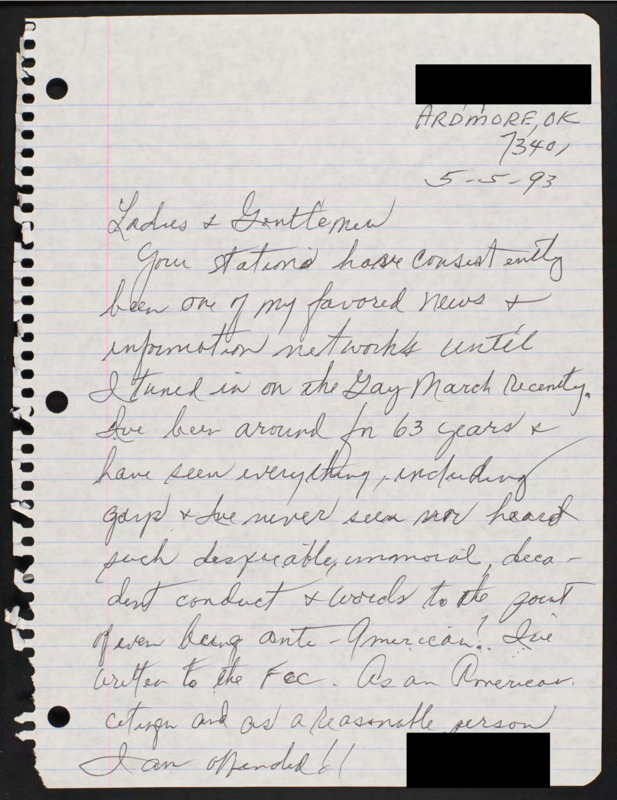 ARDMORE, OK
73401
5-5-93
Ladies & Gentlemen
Your stations have consistently
been one of my favored news &
information networks until
I tuned in on the Gay March recently.
I've been around for 63 years &
have seen everything, including
gays & I've never seen nor heard
such despicable, immoral, deca-
dent conduct & words to the point
of even being anti-American! I've
written to the FCC. As an American
citizen and as a reasonable person
I am offended!!